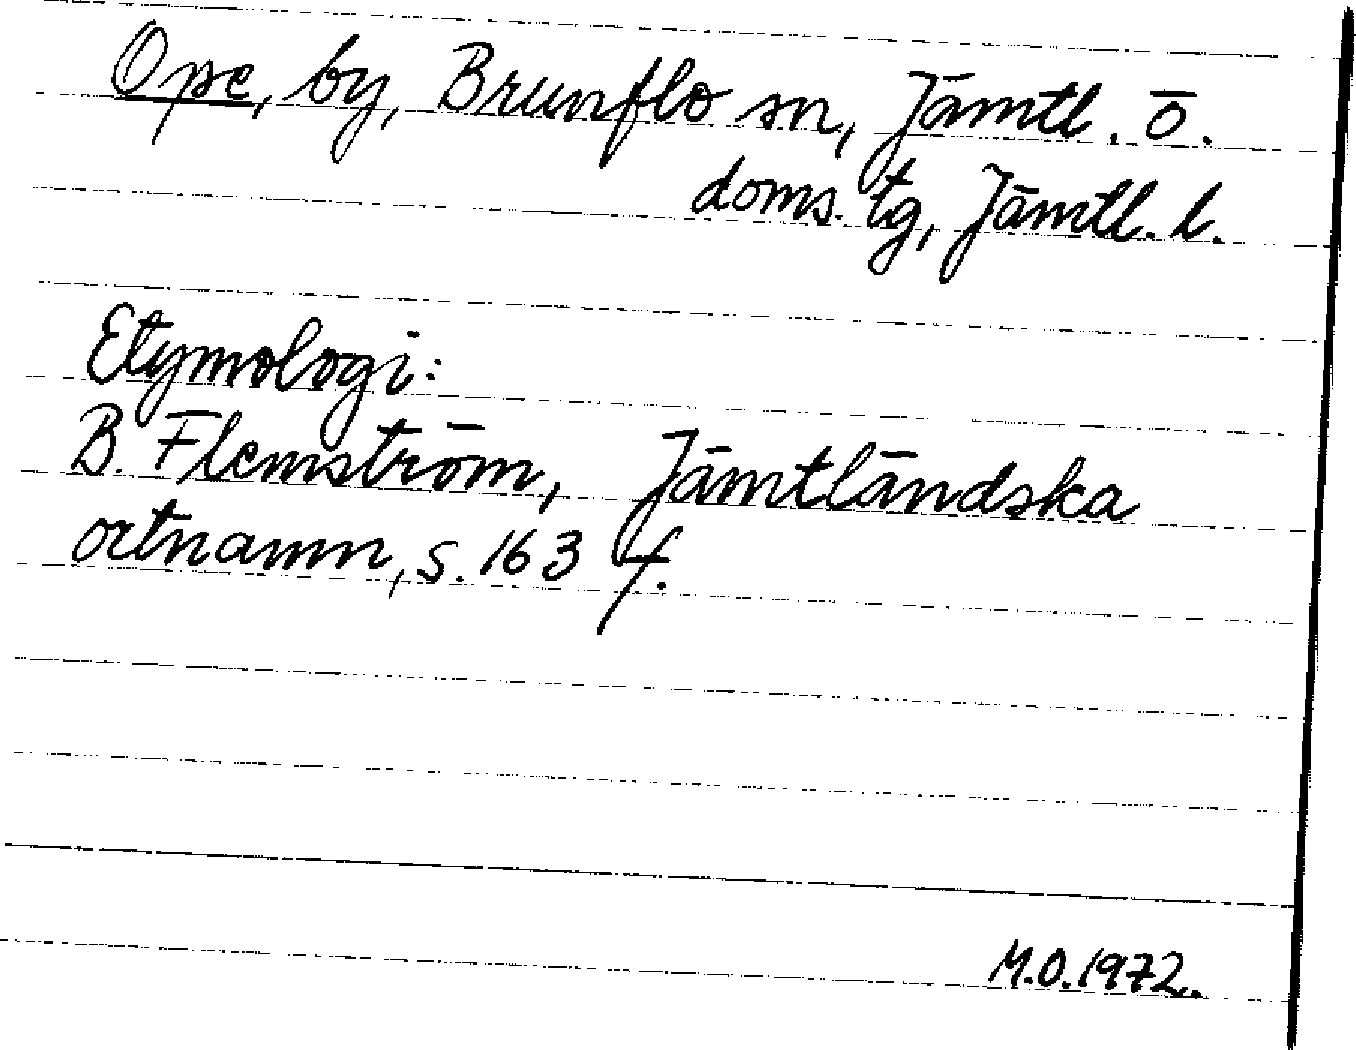 Ope, by, Brunflo sn, Jämtl. ö.
doms. tg, Jämtl. l.
Etymologi:
B. Flemström, Jämtländska
ortnamn, s. 163 f.
M.O. 1972.